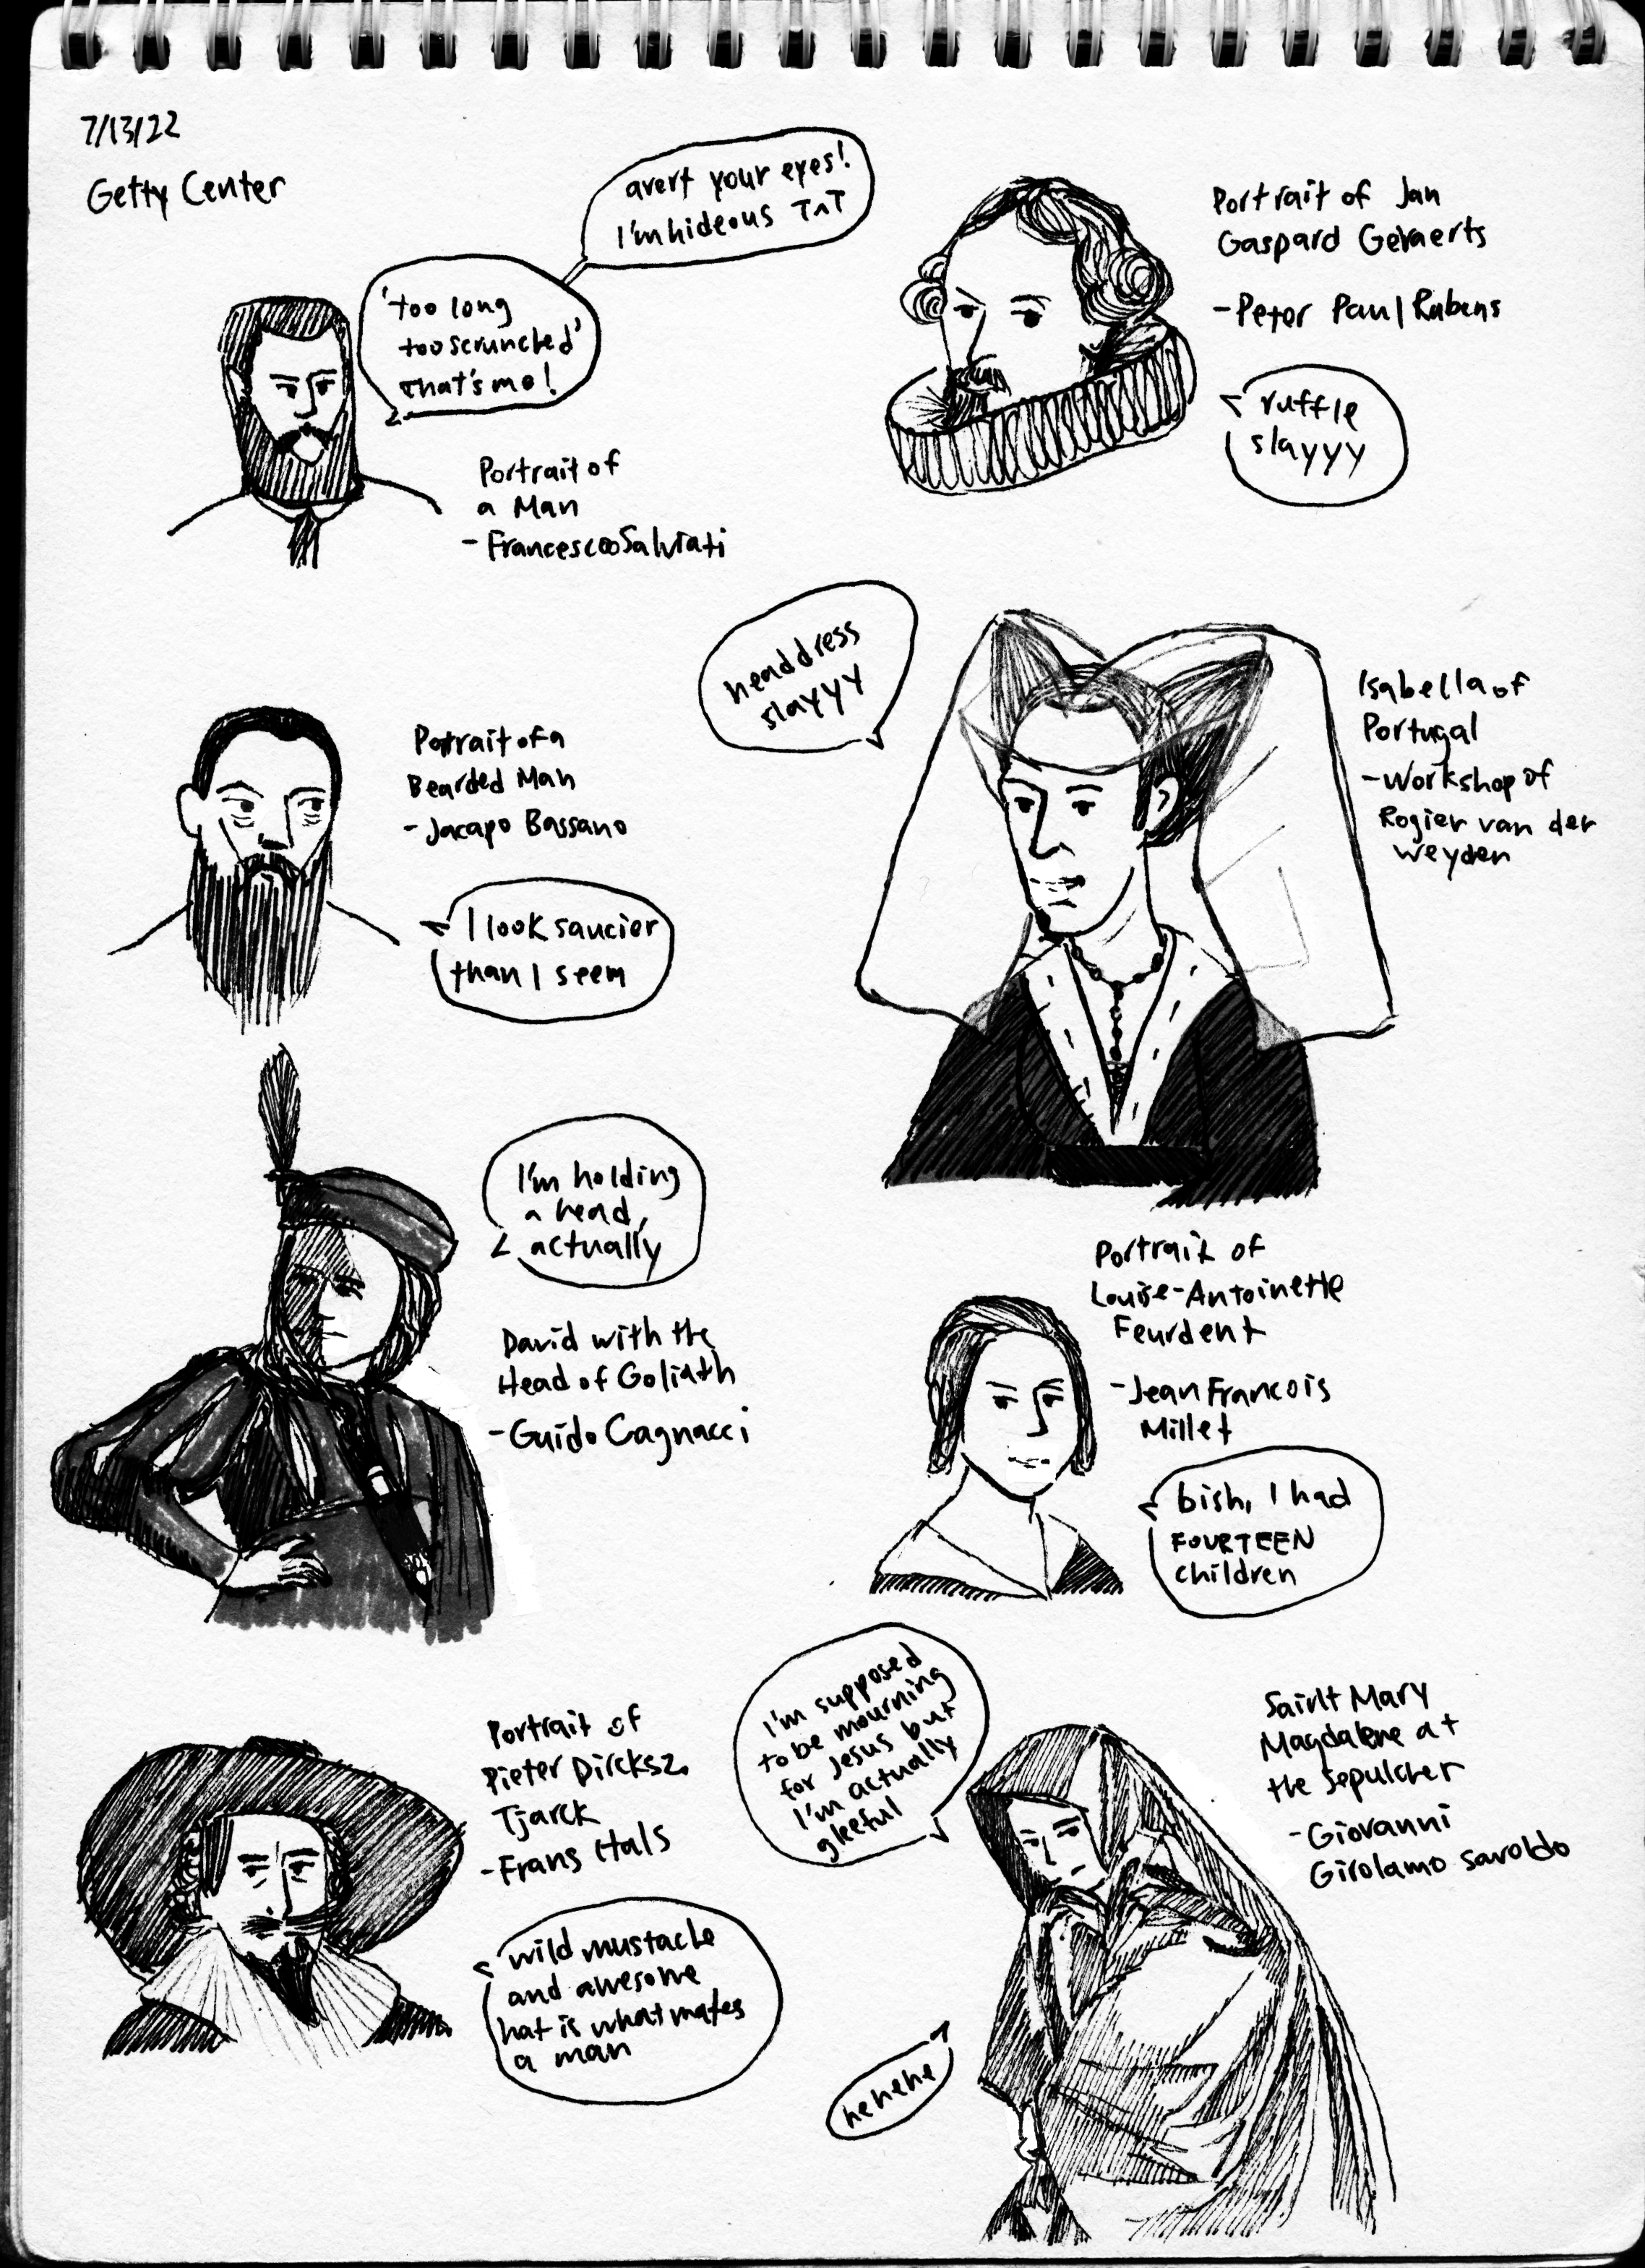 7/13/22
Getty Center
avert your eyes!
I'm hideous T^T
'too long
too scrunched'
that's me!
Portrait of
a Man
- Francescoo Salviati
Portrait of Jan
Gaspard Gevaerts
- Peter Paul Rubens
ruffle
slayyy
headdress
slayyy
Isabella of
Portugal
- Workshop of
Rogier van der
Weyden
Portrait of a
Bearded Man
- Jacapo Bassano
I look saucier
than I seem
I'm holding
a head,
actually
David with the
Head of Goliath
- Guido Cagnacci
Portrait of
Louise-Antoinette
Feurdent
- Jean Francois
Millet
bish, I had
FOURTEEN
children
Portrait of
Pieter Dircksz.
Tjarck
- Frans Hals
wild mustache
and awesome
hat is what makes
a man
I'm supposed
to be mourning
for Jesus but
I'm actually
gleeful
hehehe
Saint Mary
Magdalene at
the Sepulcher
- Giovanni
Girolamo Savoldo